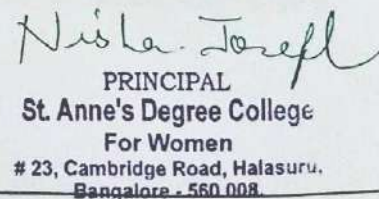 Nisha Joseph
PRINCIPAL
St. Anne's Degree College
For Women
# 23, Cambridge Road, Halasuru.
Bangalore - 560 008.